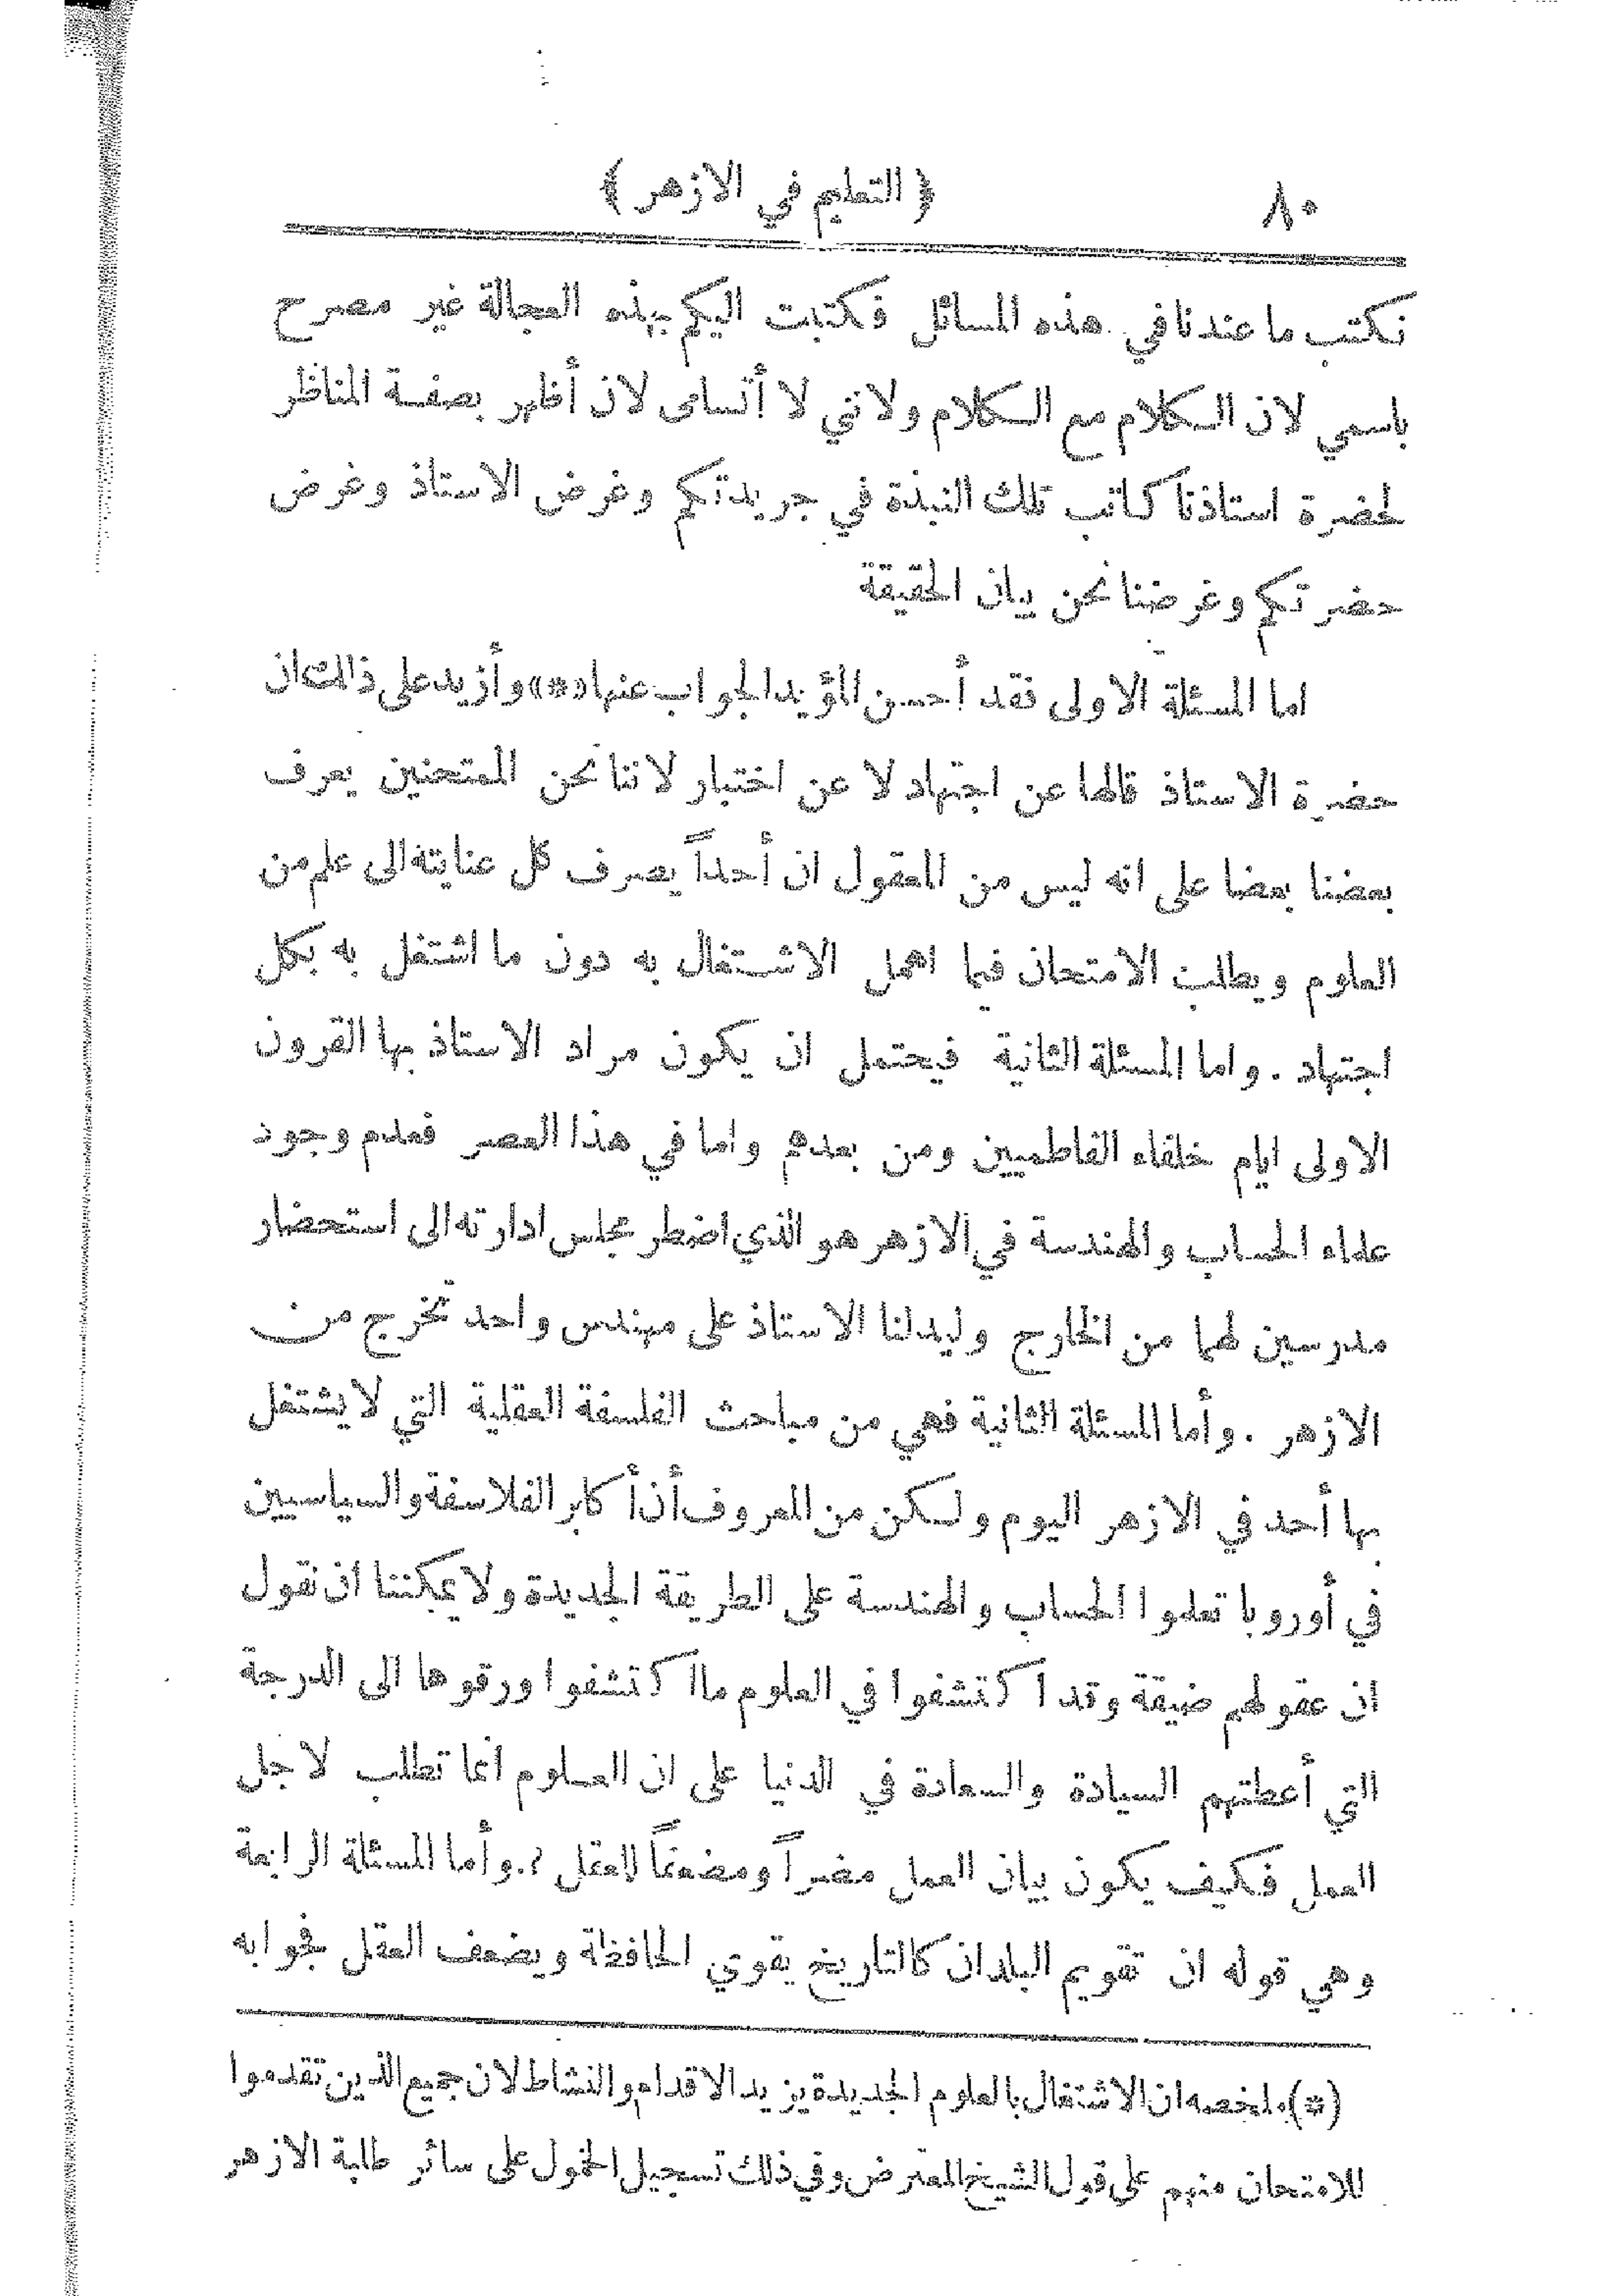 ٨٠
﴿ التعليم في الازهر ﴾
نكتب ما عندنا في هذه المسائل فكتبت اليكم بهذه العجالة غير مصرح
باسمي لان الكلام مع الكلام ولانني لا أتسامى لان أظهر بصفة المناظر
لحضرة استاذنا كاتب تلك النبذة في جريدتكم وغرض الاستاذ وغرض
حضرتكم وغرضنا نحن بيان الحقيقة
اما المسئلة الاولى فقد أحسن المؤيد الجواب عنها «*» وأزيد على ذلك ان
حضرة الاستاذ قالها عن اجتهاد لا عن اختبار لاننا نحن الممتحنين يعرف
بعضنا بعضا على انه ليس من المعقول ان أحداً يصرف كل عنايته الى علم من
العلوم ويطلب الامتحان فيما اهمل الاشتغال به دون ما اشتغل به بكل
اجتهاد . واما المسئلة الثانية فيحتمل ان يكون مراد الاستاذ بها القرون
الاولى ايام خلفاء الفاطميين ومن بعدهم واما في هذا العصر فعدم وجود
علماء الحساب والهندسة في الازهر هو الذي اضطر مجلس ادارته الى استحضار
مدرسين لهما من الخارج وليدلنا الاستاذ على مهندس واحد تخرج من
الازهر . وأما المسئلة الثانية فهي من مباحث الفلسفة العقلية التي لا يشتغل
بها أحد في الازهر اليوم ولكن من المعروف أن أكابر الفلاسفة والسياسيين
في أوروبا تعلموا الحساب والهندسة على الطريقة الجديدة ولا يمكننا ان نقول
ان عقولهم ضيقة وقد اكتشفوا في العلوم ما اكتشفوا ورقوها الى الدرجة
التي أعطتهم السيادة والسعادة في الدنيا على ان العلوم انما تطلب لاجل
العمل فكيف يكون بيان العمل مضراً ومضعفاً للعقل ؟. وأما المسئلة الرابعة
وهي قوله ان تقويم البلدان كالتاريخ يقوي الحافظة ويضعف العقل فجوابه
(*) ملخصه ان الاشتغال بالعلوم الجديدة يزيد الاقدام والنشاط لان جميع الذين تقدموا
للامتحان منهم على قول الشيخ المعترض وفي ذلك تسجيل الخمول على سائر طلبة الازهر